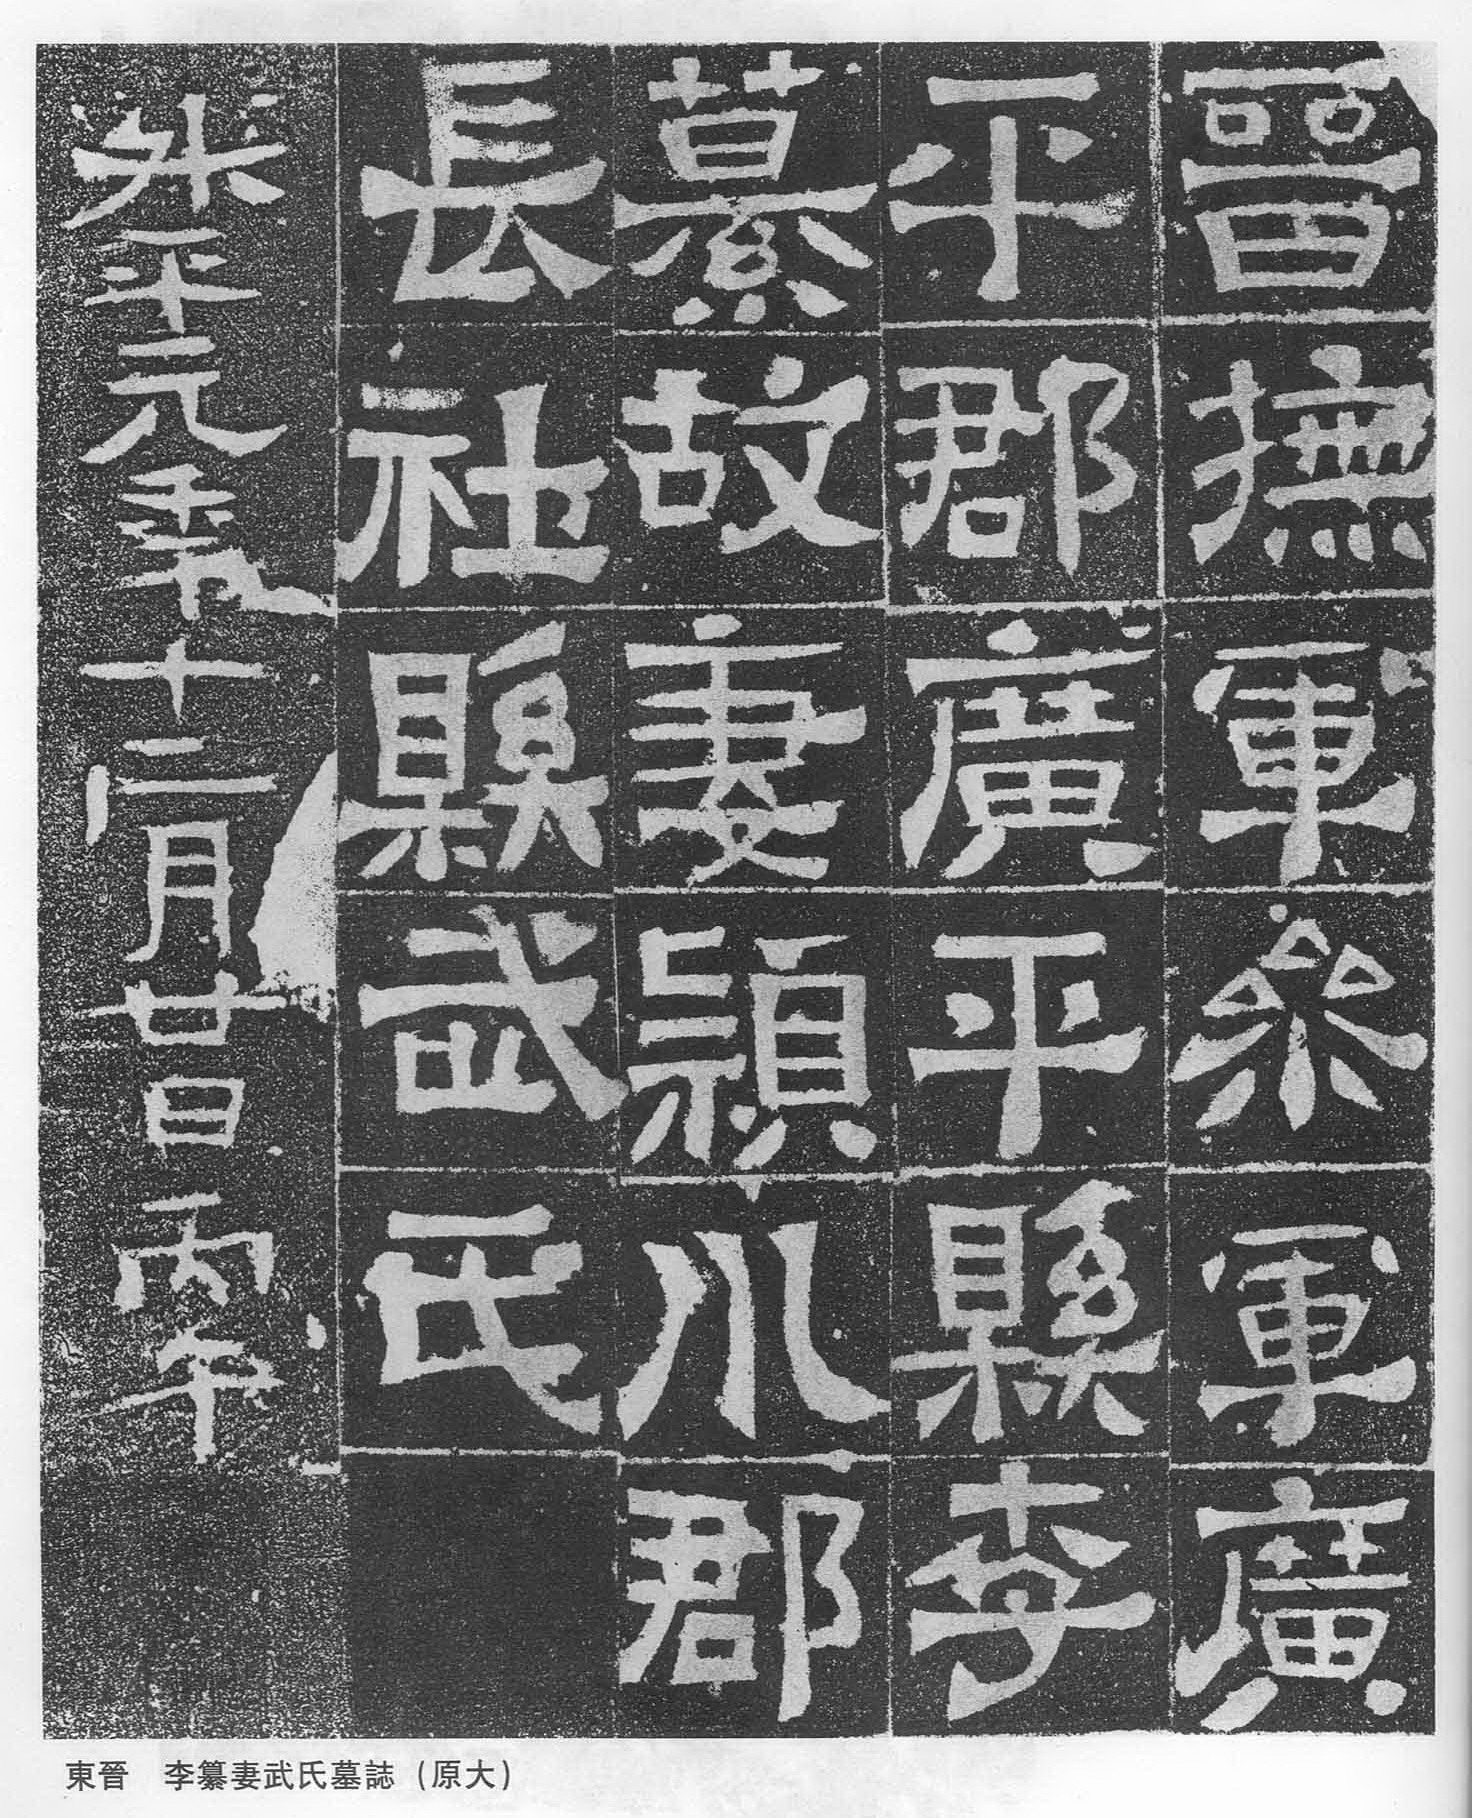 晉撫軍參軍廣
平郡廣平縣李
纂故妻潁川郡
長社縣武氏
升平元年十二月廿日丙午
東晉　李纂妻武氏墓誌（原大）